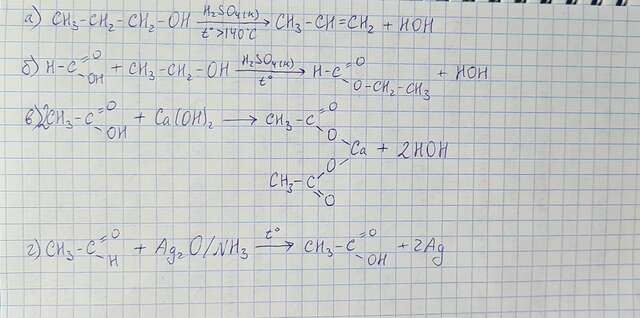 а) CH₃-CH₂-CH₂-OH H₂SO₄(к) t°>140°C → CH₃-CH=CH₂ + HOH
б) H-C =O OH + CH₃-CH₂-OH H₂SO₄(к) t° → H-C =O O-CH₂-CH₃ + HOH
в) 2CH₃-C =O OH + Ca(OH)₂ → CH₃-C =O O Ca + 2HOH
CH₃-C O =O
г) CH₃-C =O H + Ag₂O/NH₃ t° → CH₃-C =O OH + 2Ag